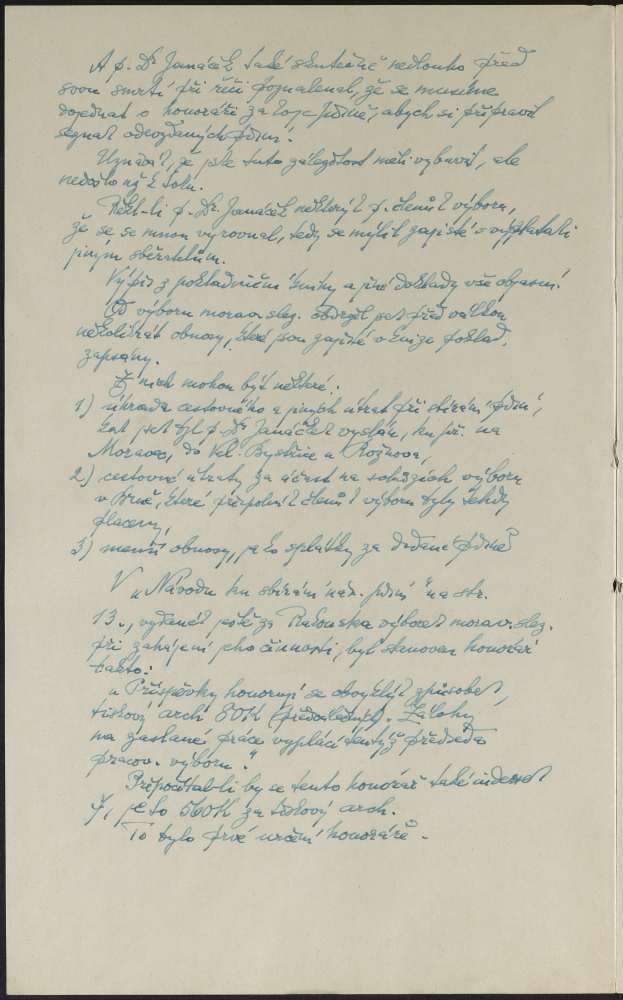 A p. Dr Janáček také skutečně nedlouho před
svou smrtí při řeči poznamenal, že se musíme
dojednat o honoráři za moje písně, abych si připravil
seznam odevzdaných písní.
Uznával, že jste tuto záležitost měli vybavit, ale
nedošlo už k tomu.
Řekl-li p. Dr. Janáček některým p. členům výboru,
že se se mnou vyrovnal, tedy se mýlil zajisté s výplatami
jiným sběratelům.
Výpis z pokladničních knihy a jiné doklady vše objasní.
Od výboru morav. slez. obdržel jsem před válkou
několikrát obnosy, které jsou zajisté v knize poklad.
zapsány.
Z nich mohou být některé:
1) úhrada cestovného a jiných útrat při sbírání písní,
kam jsem byl p. Dr Janáčkem vyslán, ku př. na
Moravec, do Val. Bystřice u Rožnova,
2) cestovné útraty za účast na schůzích výboru
v Brně, které přespolním členům výboru byly tehdy
placeny,
3) menší obnosy, jako splátky za dodané písně?
V „Návodu ku sbírání nár. písní" na str.
13., vydaném ještě za Rakouska výborem morav. slez.
při zahájení jeho činnosti, byl stanoven honorář
takto:
„Příspěvky honorují se obvyklým způsobem,
tiskový arch 80 K (předválečných). Zálohy
na zaslané práce vyplácí tentýž předseda
pracov. výboru."
Připočítal-li by se tento honorář také indexem
7, je to 560 K za tiskový arch.
To bylo prvé určení honoráře.